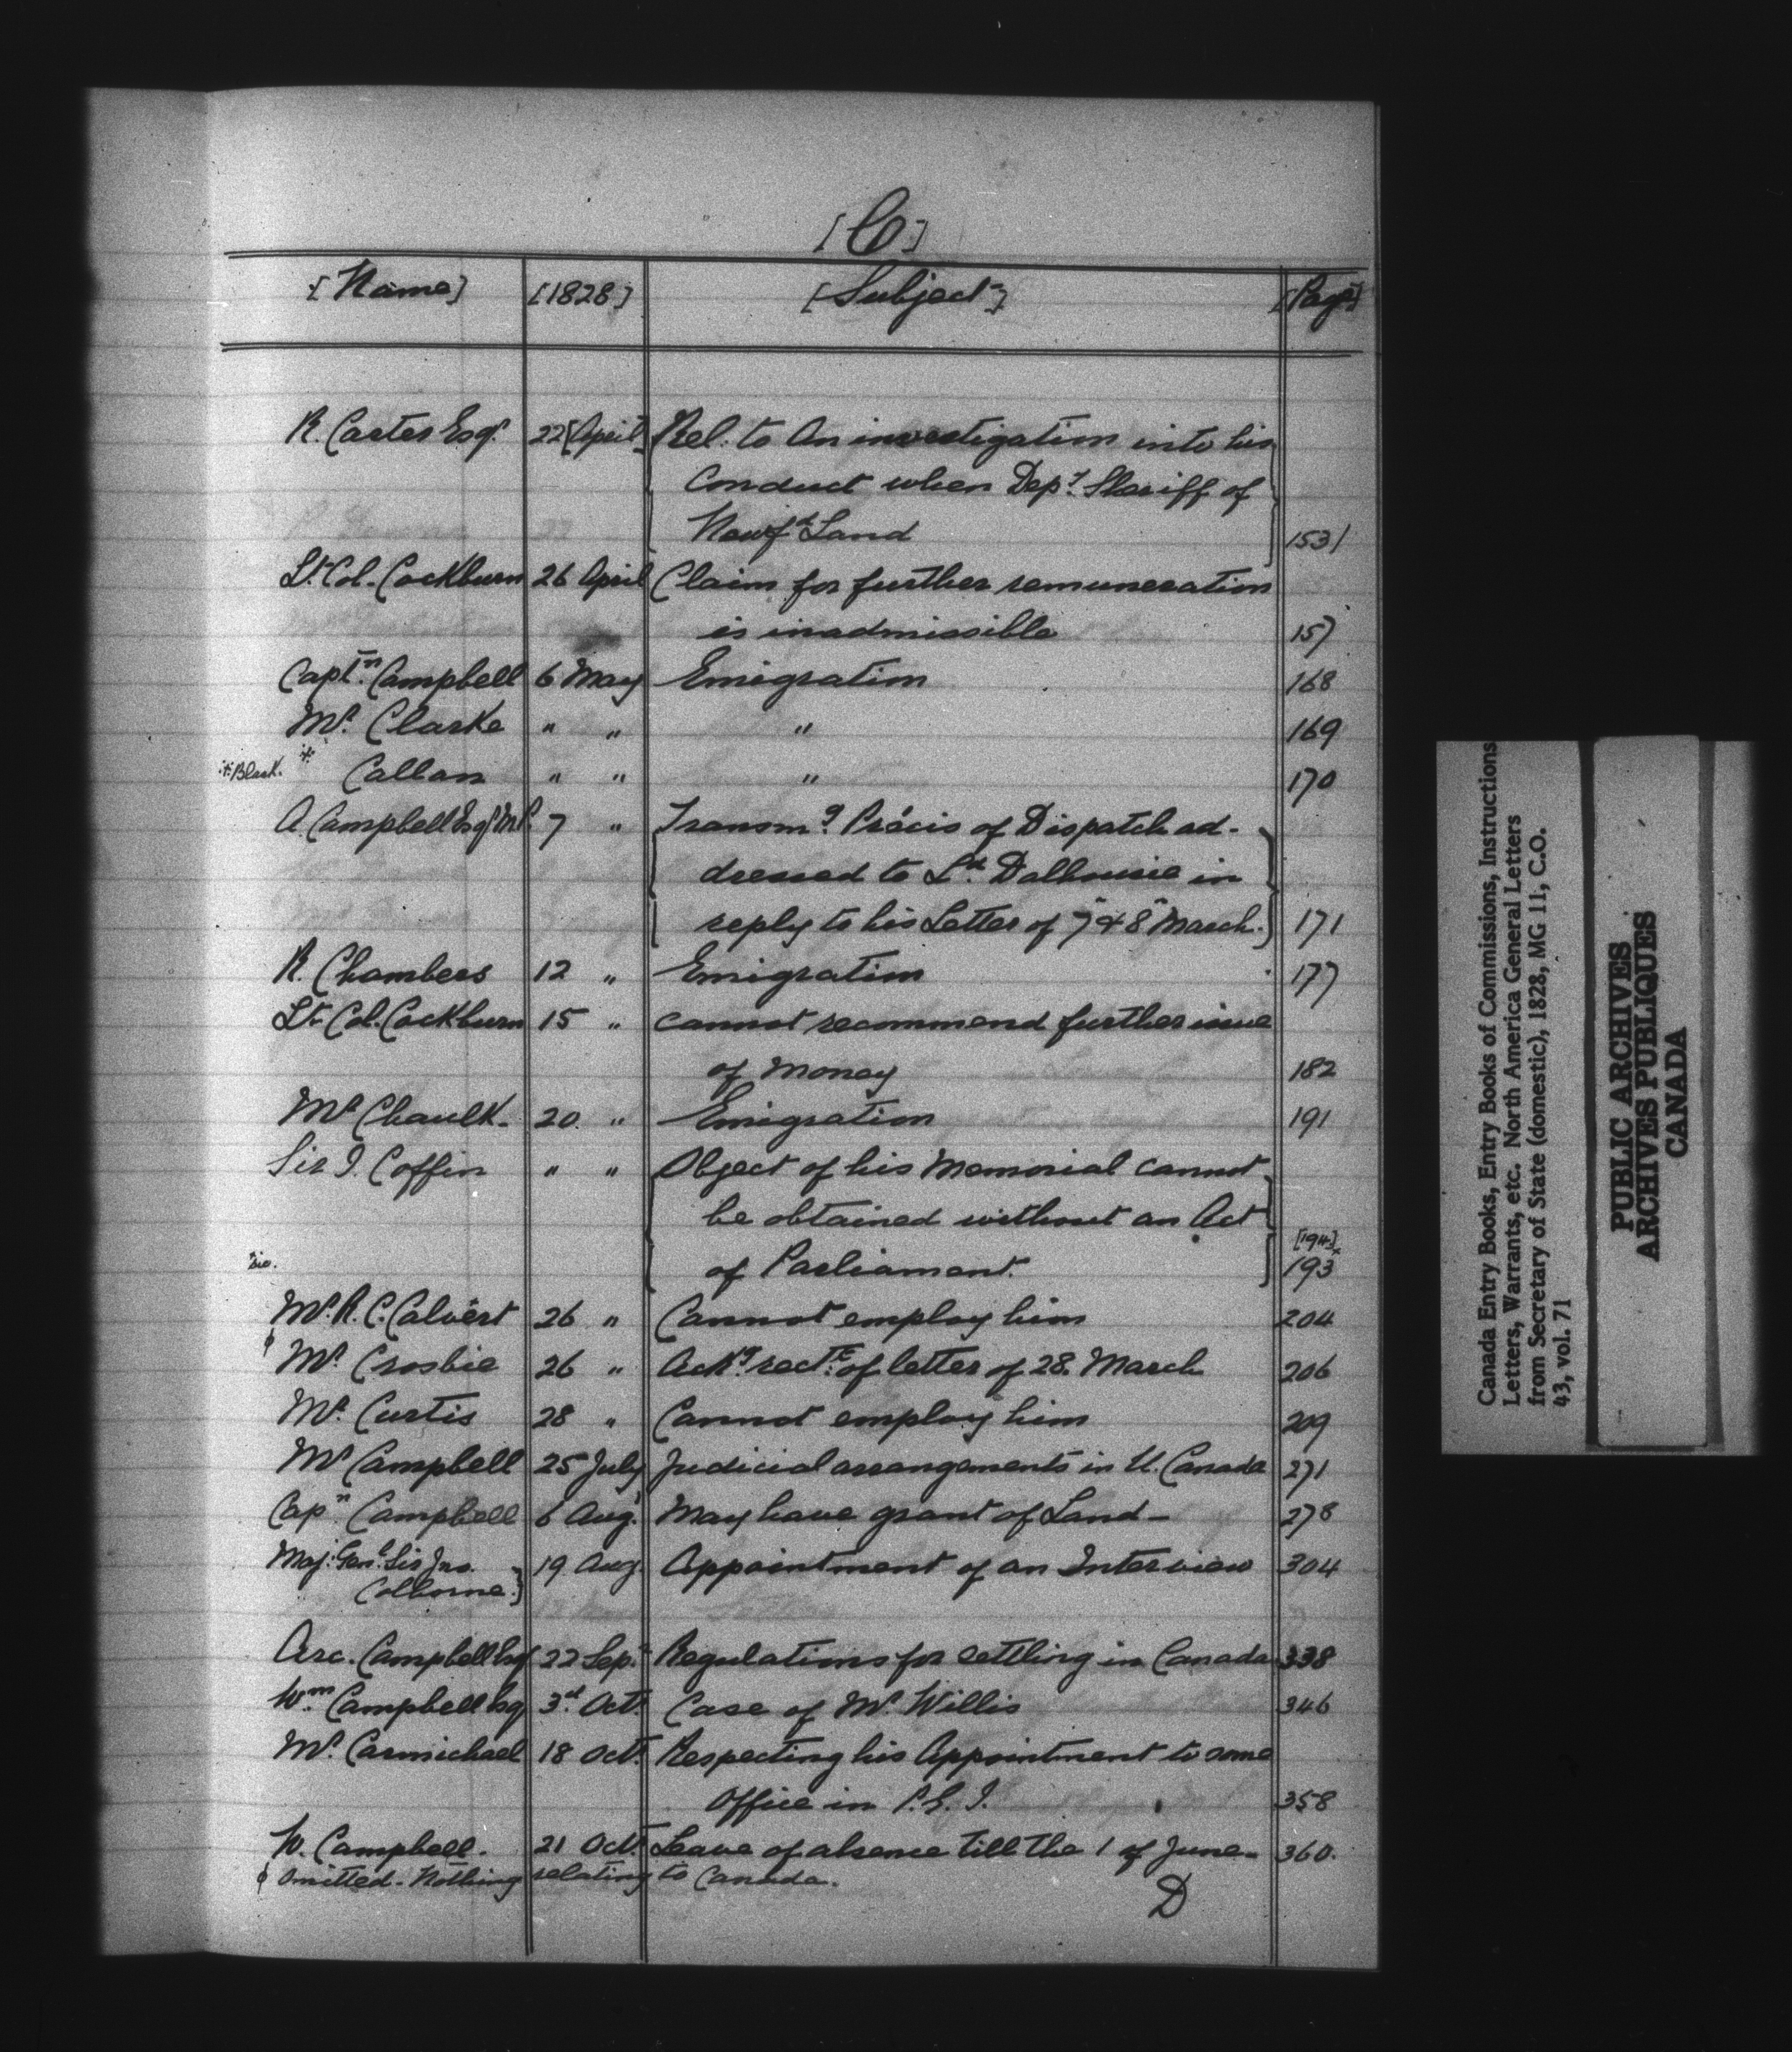 [C]
[Name] [1828] [Subject] [Page]
R. Carter Esqr. 22 [April] Rel. to An investigation into his
Conduct when Depy. Sheriff of
Newfd Land 153/
Lt. Col. Cockburn 26 April Claim for further remuneration
is inadmissible 157
Captn. Campbell 6 May Emigration 168
Mr. Clarke " " " 169
*Blank. * Callan " " " 170
A. Campbell Esqr M.P. 7 " Transmg. Précis of Dispatch ad-
dressed to Ld. Dalhousie in
reply to his Letter of 7" & 8" March. 171
R. Chambers 12 " Emigration 177
Lt. Col. Cockburn 15 " cannot recommend further issue
of Money 182
Mr Chaulk. 20. " Emigration 191
Sir I. Coffin " " Object of his Memorial cannot
be obtained without an Act
[194]x
xsic. of Parliament. 193
Mr. R. C. Calvert 26 " Cannot employ him 204
ϕ Mr. Crosbie 26 " Ackg. rect. of letter of 28. March 206
Mr. Curtis 28 " Cannot employ him 209
Mr Campbell 25 July Judicial arrangements in U. Canada 271
Capn. Campbell 6 Aug. May have grant of Land - 278
Maj. Genl. Sir Jno. 19 Aug. Appointment of an Interview 304
Colborne.
Arc. Campbell Esq 22 Sepr. Regulations for settling in Canada 338
Wm Campbell Esq 3d. Oct. Case of Mr. Willis 346
Mr. Carmichael 18 Oct. Respecting his Appointment to some
Office in P.E.I. 358
W. Campbell. 21 Oct. Leave of absence till the 1 of June - 360.
ϕ Omitted. Nothing relating to Canada.
D
Canada Entry Books, Entry Books of Commissions, Instructions
Letters, Warrants, etc. North America General Letters
from Secretary of State (domestic), 1828, MG 11, C.O.
43, vol. 71
PUBLIC ARCHIVES
ARCHIVES PUBLIQUES
CANADA